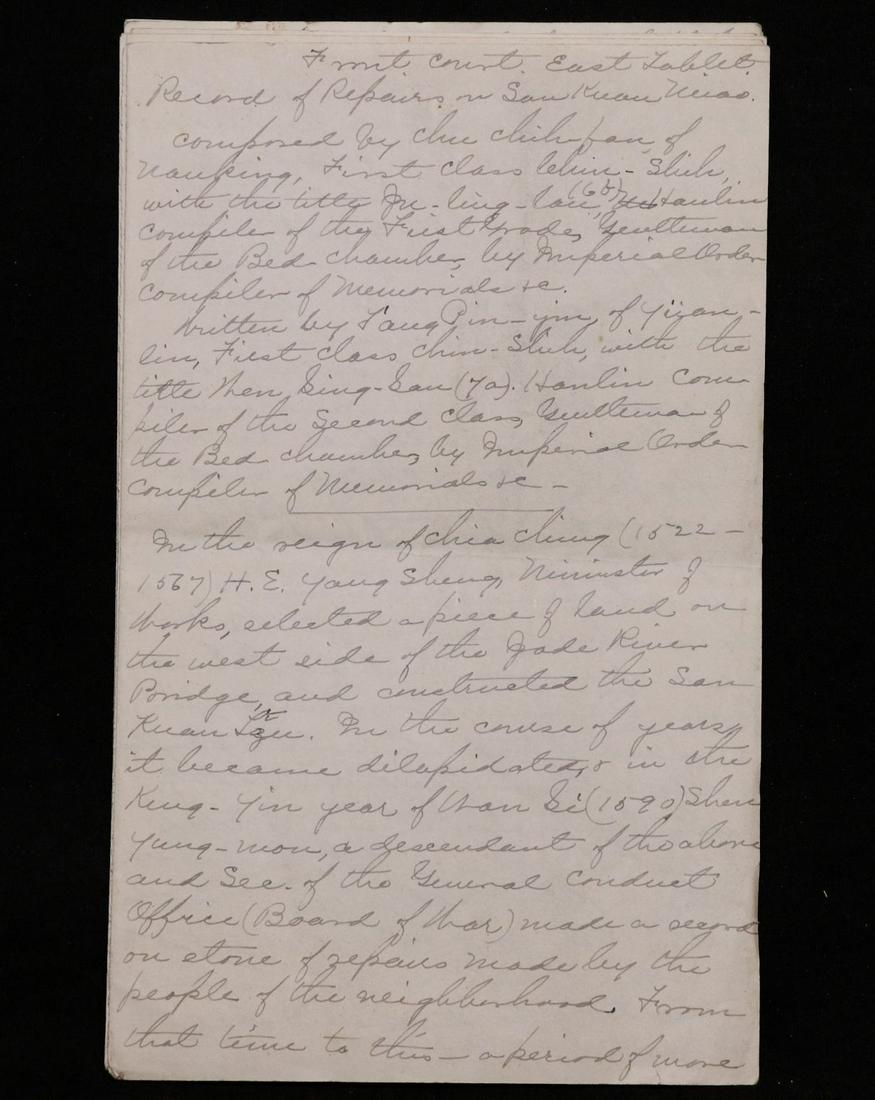 Front court. East Tablet.
Record of Repairs on San Kuan Miao.
composed by Chu Chih-fan, of
Nanking, First class Chin-Shih,
with the title Ju-ling-lau, (6b) Hanlin
compiler of the First Grade, Gentleman
of the Bed chamber, by Imperial Order
compiler of Memorials &c.
Written by Tang Pin-yin, of
lin, First class Chin-Shih, with the
title Wen ling-lau (7a). Hanlin com-
piler of the Second class, Gentleman of
the Bed chamber, by Imperial Order
compiler of Memorials &c -
In the reign of Chia Ching (1522-
1567) H.E. Yang Sheng, Minister of
Works, selected a piece of land on
the west side of the Jade River
Bridge, and constructed the San
Kuan. In the course of years,
it became dilapidated, & in the
Keng-Yin year of Wan Li (1590) Shen
Yung-mon, a descendant of the above
and Sec. of the General Conduct
Office (Board of War) made a record
on stone of repairs made by the
people of the neighborhood. From
that time to this - a period of more